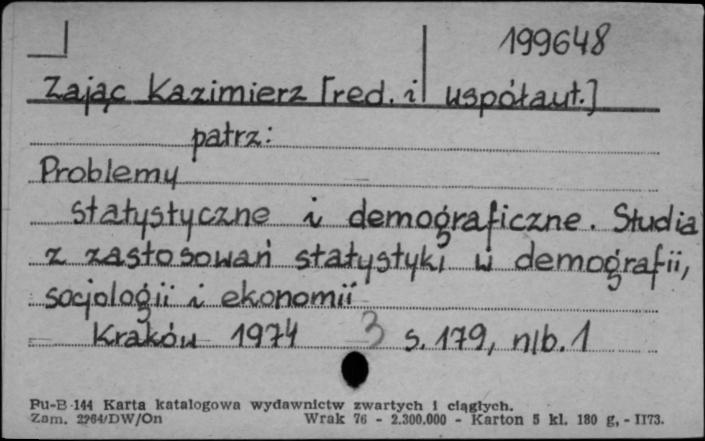 199648
Zając Kazimierz [red. i współaut.]
patrz:
Problemy
statystyczne i demograficzne. Studia
z zastosowań statystyki w demografii,
socjologii i ekonomii
Kraków 1974 3 s. 179, nlb. 1
Pu-B-144 Karta katalogowa wydawnictw zwartych i ciągłych.
Zam. 2264/DW/On Wrak 76 - 2.300.000 - Karton 5 kl. 180 g, - II73.